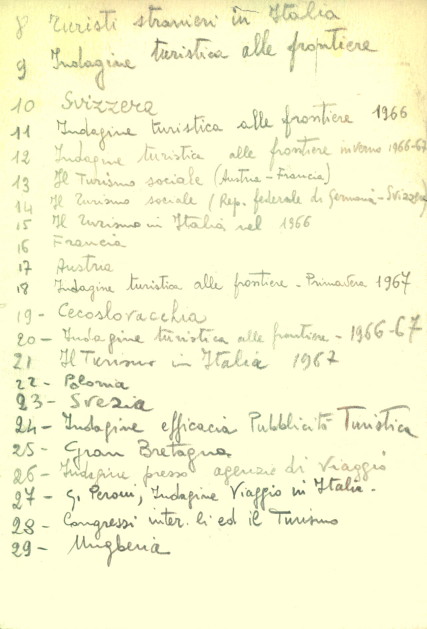 8 Turisti stranieri in Italia
9 Indagine turistica alle frontiere
10 Svizzera
11 Indagine turistica alle frontiere 1966
12 Indagine turistica alle frontiere inverno 1966-67
13 Il Turismo sociale (Austria - Francia)
14 Il Turismo sociale (Rep. federale di Germania - Svizzera)
15 Il Turismo in Italia nel 1966
16 Francia
17 Austria
18 Indagine turistica alle frontiere - Primavera 1967
19 - Cecoslovacchia
20 - Indagine turistica alle frontiere - 1966-67
21 Il Turismo in Italia 1967
22 - Polonia
23 - Svezia
24 - Indagine efficacia Pubblicità Turistica
25 - Gran Bretagna
26 - Indagine presso agenzie di Viaggio
27 - G. Peroni, Indagine Viaggio in Italia.
28 - Congressi inter.li ed il Turismo
29 - Ungheria